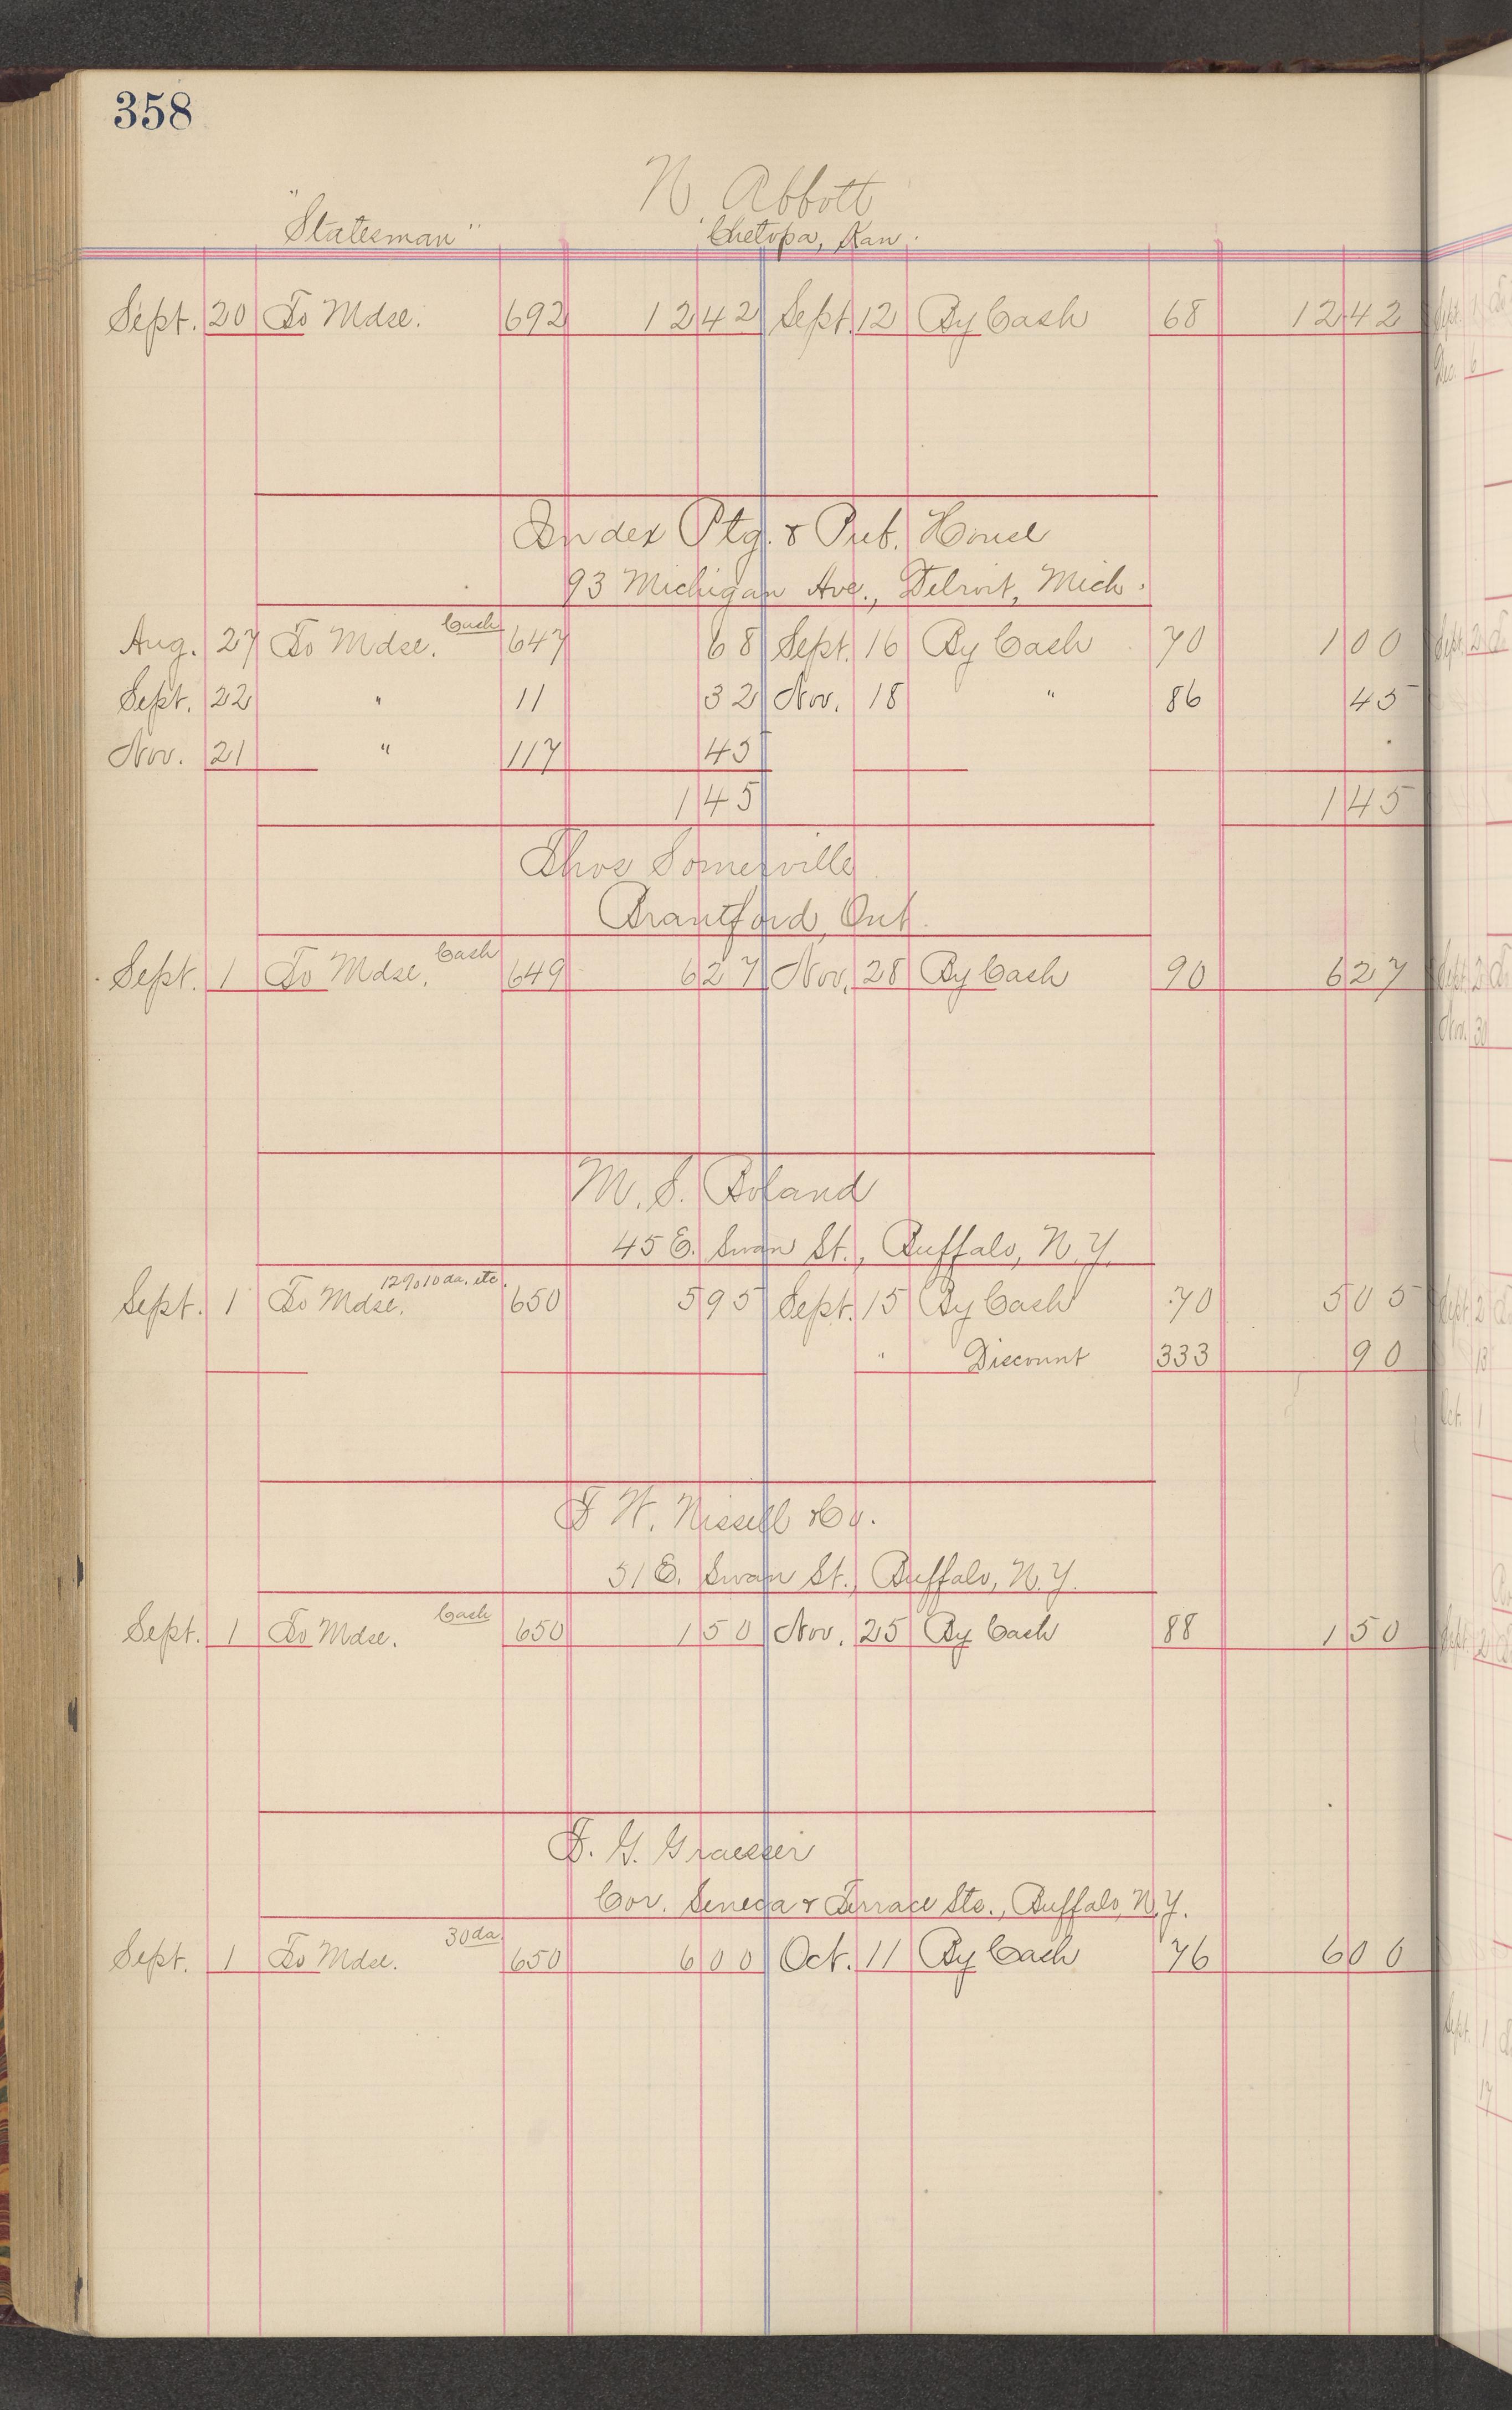 358
N Abbott
"Statesman" Chetopa, Kan.
Sept. 20 To Mdse. 692 12 42 Sept. 12 By Cash 68 12 42
Index Ptg. & Pub. House
93 Michigan Ave., Detroit, Mich.
Aug. 27 To Mdse. Cash 647 68 Sept. 16 By Cash 70 1 00
Sept. 22 " 11 32 Nov. 18 " 86 45
Nov. 21 " 117 45
1 45 1 45
Thos Somerville
Brantford, Ont.
Sept. 1 To Mdse. Cash 649 6 27 Nov. 28 By Cash 90 6 27
M. S. Boland
45 E. Swan St., Buffalo, N.Y.
Sept. 1 To Mdse. 12% 10 da. etc. 650 5 95 Sept. 15 By Cash 70 5 05
" Discount 333 90
F W. Nissell & Co.
51 E. Swan St., Buffalo, N.Y.
Sept. 1 To Mdse. Cash 650 1 50 Nov. 25 By Cash 88 1 50
F. G. Graesser
Cor. Seneca & Terrace Sts., Buffalo, N.Y.
Sept. 1 To Mdse. 30 da. 650 6 00 Oct. 11 By Cash 76 6 00